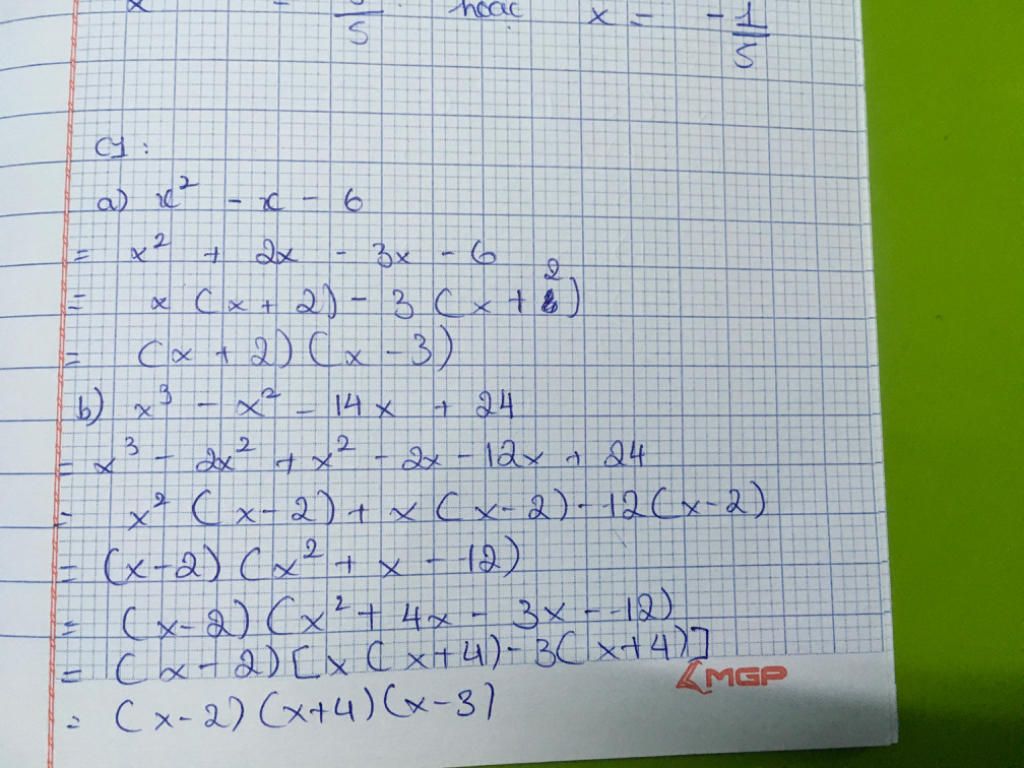 x = /5 hoặc x = -1/5
C1:
a) x² - x - 6
= x² + 2x - 3x - 6
= x (x + 2) - 3 (x + 2)
= (x + 2) (x - 3)
b) x³ - x² - 14x + 24
= x³ - 2x² + x² - 2x - 12x + 24
= x² (x - 2) + x (x - 2) - 12 (x - 2)
= (x - 2) (x² + x - 12)
= (x - 2) (x² + 4x - 3x - 12)
= (x - 2) [x (x + 4) - 3 (x + 4)]
MGP
= (x - 2) (x + 4) (x - 3)